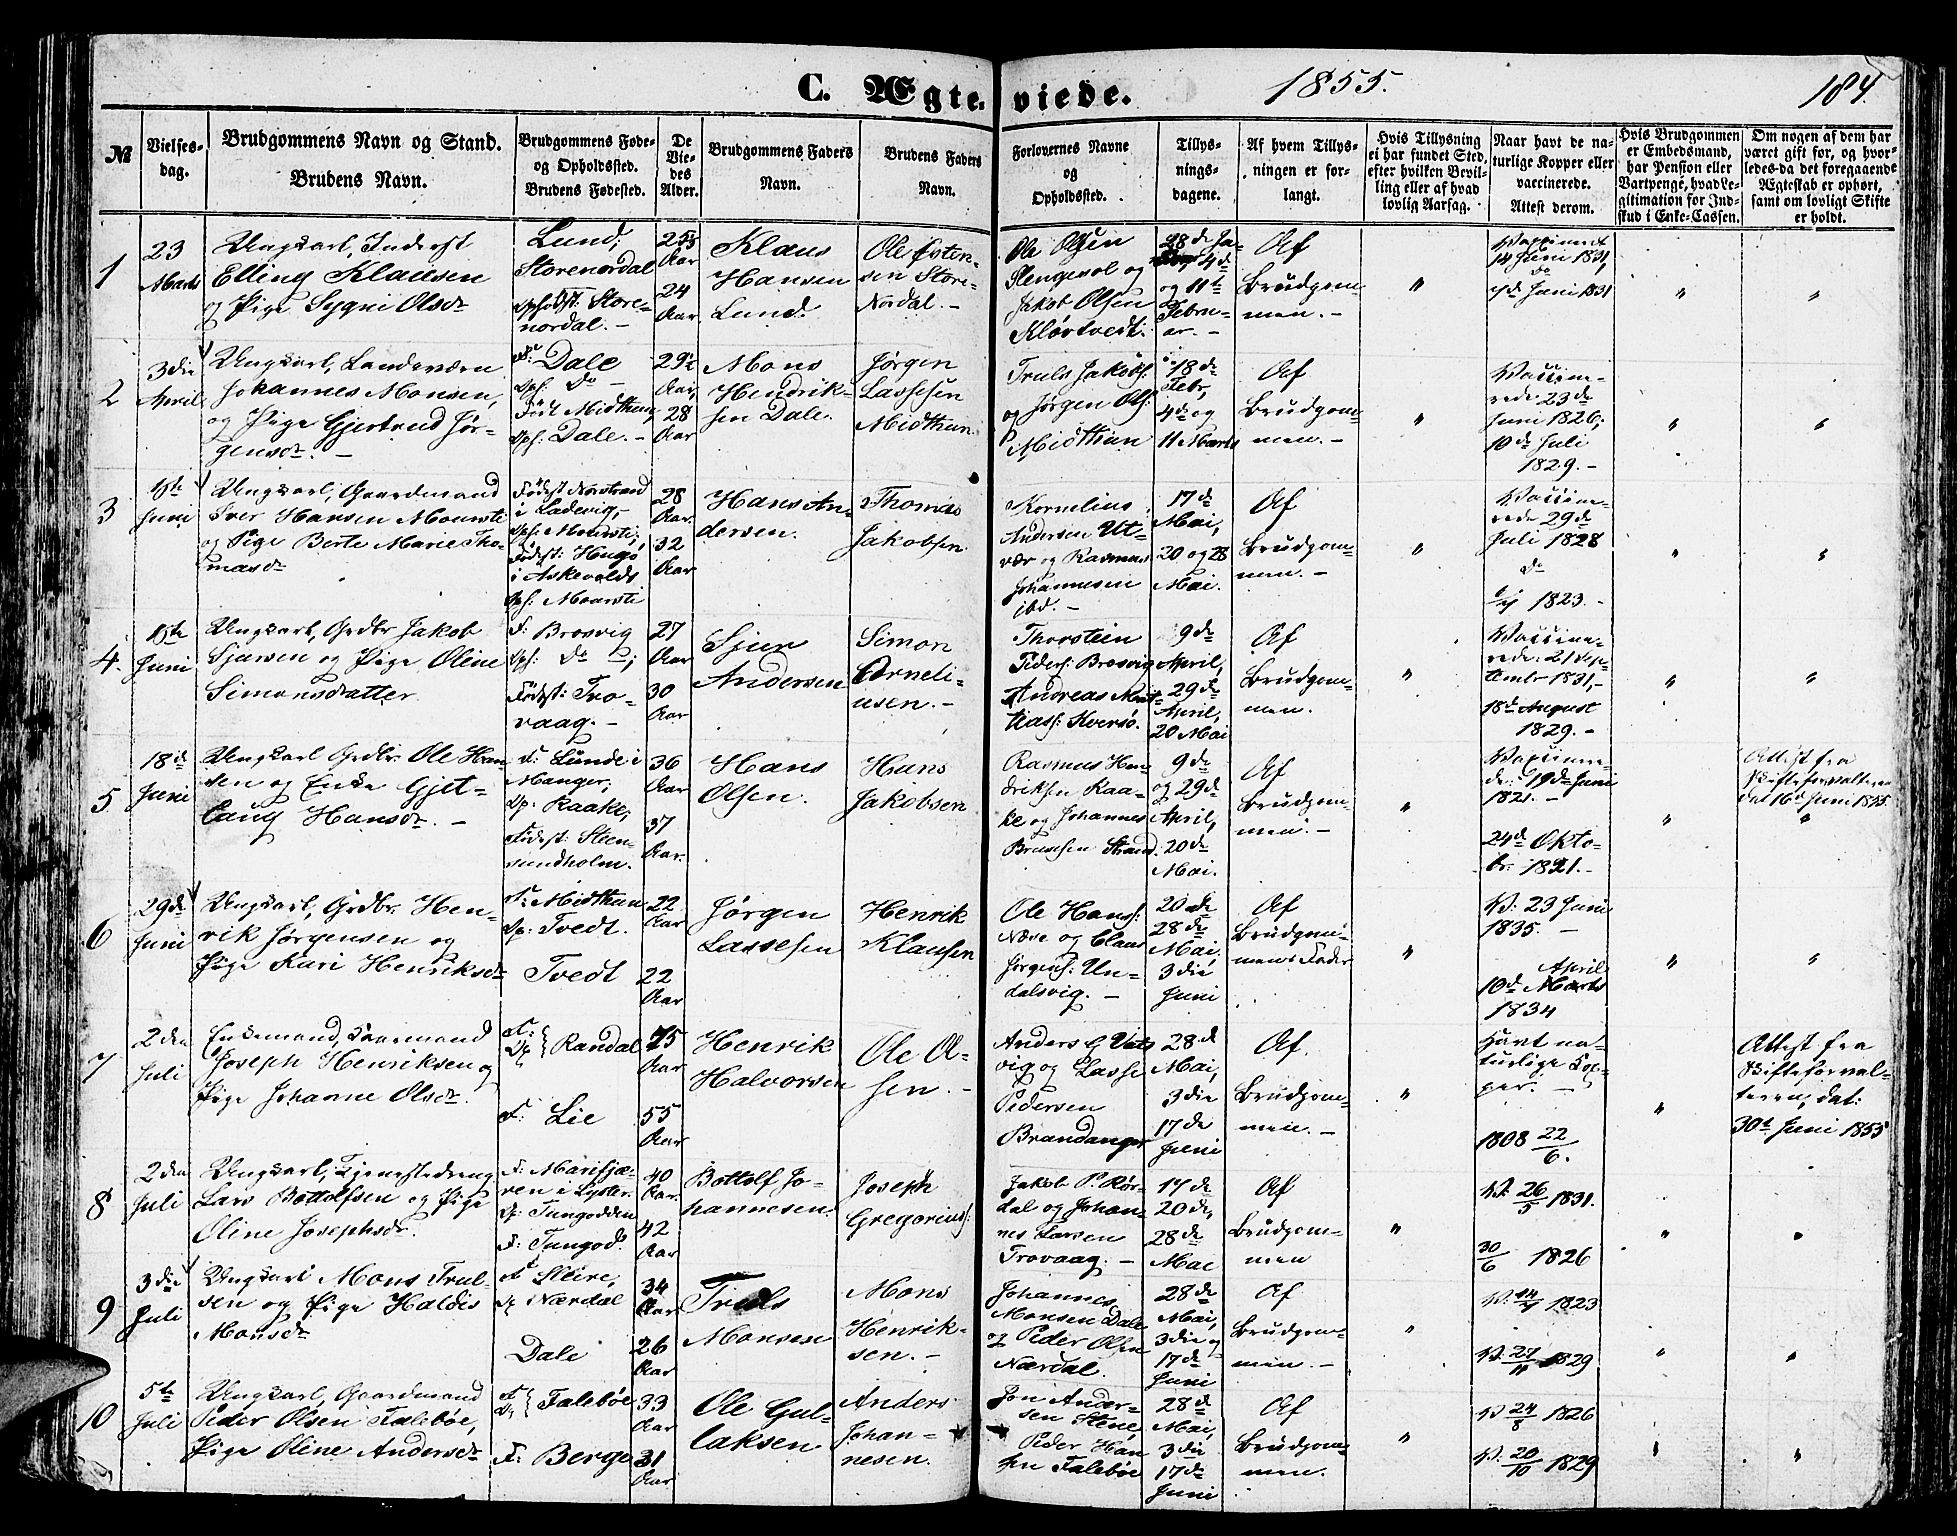 C. Ægteviede. 1855. 184.
№
Vielses-
dag.
Brudgommens Navn og Stand.
Brudens Navn.
Brudgommens Føde-
og Opholdssted.
Brudens Fødested.
De
Vie-
des
Alder.
Brudgommens Faders
Navn.
Brudens Faders
Navn.
Forlovernes Navne
og
Opholdssted.
Tillys-
nings-
dagene.
Af hvem Tillys-
ningen er for-
langt.
Hvis Tillysning
ei har fundet Sted,
efter hvilken Bevil-
ling eller af hvad
lovlig Aarsag.
Naar havt de na-
turlige Kopper eller
vaccinerede.
Attest derom.
Hvis Brudgommen
er Embedsmand,
har Pension eller
Vartpenge, hvad Le-
gitimation for Ind-
skud i Enke-Cassen.
Om nogen af dem har
været gift før, og hvor-
ledes da det foregaaende
Ægteskab er ophørt,
samt om lovligt Skifte
er holdt.
1
23
Marts
Ungkarl, Inderst
Elling Klausen
og Pige Sygni Olsdr
Lund,
Storenordal
Opholdst: Store-
nordal. -
25½
Aar
24
Aar
Klaus
Hansen
Lund.
Ole Østen-
sen Store-
Nordal. -
Ole Olsen
Slengesol og
Jakob Olsen
Kløvtvedt.
28de Ja-
4de
og 11te
Febru-
ar. -
Af
Brudgom-
men. -
"
Vaccineret
14 Juni 1831,
do
7de Juni 1831
"
"
2
3die
April
Ungkarl, Landeværn
Johannes Monsen,
og Pige Gjertrud Jør-
gensdr. -
F: Dale
Oph. do -
Født Midthun,
Oph: Dale. -
29½
Aar,
28
Aar
Mons
Hendrik-
sen Dale.
Jørgen
Lassesen
Midthun
Truls Jakobs:
og Jørgen Ols:
Midthun
18de
Febr,
4de og
11 Marts
Af
Brudgom-
men. -
"
Vaccine-
rede 23de
Juni 1826;
10de Juli
1829. -
"
"
3
15te
Juni
Ungkarl, Gaardmand
Iver Hansen Mourste
og Pige Berte Marie Tho-
masdr
Fødest Norstrand
i Ladevig, -
Oph: Mourste;
Fødest: Hugø
i Askevolds
Oph: Mourste
28
Aar.
32
Aar
Hans An-
dersen.
Thomas
Jakobsen
Kornelius
Andersen Ut-
vær og Rasmus
Johannesen
ibd. -
17de
Mai,
20 og 28
Mai.
Af
Brudgom-
men. -
"
Vaccine-
rede 29de
Juli 1828
do
1823. -
"
"
4.
15te
Juni
Ungkarl, Grdbr Jakob
Sjursen og Pige Oline
Simonsdatter
F: Brosvig
Oph: do;
Fødest: Tro-
vaag. -
27
Aar
30
Aar
Sjur
Andersen
Simon
Corneli-
usen. -
Thorstein
Peders: Brosvig
Andreas Mat-
tias: Kversø.
9de
April,
29de
April,
20 Mai
Af
Brudgom-
men.
"
Vaccine-
rede: 21 Sep-
tembr 1831, -
18de August
1829. -
"
"
5
18de
Juni
Ungkarl Grdbr. Ole Han-
sen og Enke Gjet-
laug Hansdr. -
F: Lunde i
Manger,
Op: Raake,
Fødest: Steen-
sundholm.
36
Aar
37
Aar.
Hans
Olsen.
Hans
Jakobsen
Rasmus Hen-
driksen Raa-
ke og Johannes
Brunsen Strand.
9de
og 29de
April,
20de
Mai.
Af
Brudgom-
men. -
"
Vaccinere-
de: 19de Juni
1821. -
24de Okto-
br: 1821. -
"
Attest fra
Skifteforvalteren
dat 16de Juni 1855.
"
6
29de
Juni
Ungkarl, Grdbr. Hen-
rik Jørgensen og
Pige Kari Henriksdr
F: Midthun
Op: Tvedt.
Tvedt
22
Aar
22
Aar
Jørgen
Lassesen
Henrik
Klausen
Ole Hans:
Næse og Claus
Jørgens: Un-
dalsvig. -
20de
28de
Mai,
3die
Juni
Af
Brudgom-
mens Fader
"
V: 23 Juni
1835. -
April
10de Marts
1834
"
"
7
2den
Juli
Enkemand, Kaarmand
Joseph Henriksen og
Pige Johanne Olsdr.
F:
Op } Randal
F: Lie
75
Aar
55
Aar
Henrik
Halvorsen
Ole Ol-
sen. -
Anders G Vats
vig og Lasse
Pedersen
Brandanger
28de
Mai,
3die
17de
Juni
Af.
Brudgom-
men. -
"
Havt na-
turlige Kop-
per. -
1808 22/6.
"
Attest fra
Skifteforval-
teren, dat:
30te Juni 1855
8
2den
Juli
Ungkarl, Tjenestedreng
Lars Bottolfsen og Pige
Oline Josephsdr.
F: Marifjæ-
ren i Lyster.
Op: Tungodden
F: Tungod.
40
Aar.
42
Aar
Bottolf Jo-
hannesen.
Joseph
Gregorius:
Jakob P. Rør-
dal og Johan-
nes Larsen
Trovaag. -
17de
20de,
28de
Mai
Af
Brudgom-
men
"
V: 26/5 1831.
30/6 1826
"
"
9
3die
Juli
Ungkarl Mons Trul-
sen og Pige Haldis
Monsdr
F Steire,
Op Nærdal
Dale
34
Aar
26
Aar
Truls
Monsen
Mons
Henrik-
sen. -
Johannes
Monsen Dale
og Peder Olsen
Nærdal.
28de
Mai,
3die og
17de
Juni
Af
Brudgom-
men. -
"
V: 1823
V: 27/11 1829
"
"
10
5te
Juli
Ungkarl, Gaardmand
Peder Olsen Falebøe,
Pige Oline Andersdr
F
Op } Falebøe
F: Berge
33
Aar
31
Aar
Ole Gul-
laksen
Anders
Johan-
nesen.
Jon Ander-
sen Stene,
Peder Han
sen Falebøe
28de
Mai,
3die
17de
Juni
Af
Brudgom-
men.
"
V: 24/8 1826
V: 20/10 1829
"
"